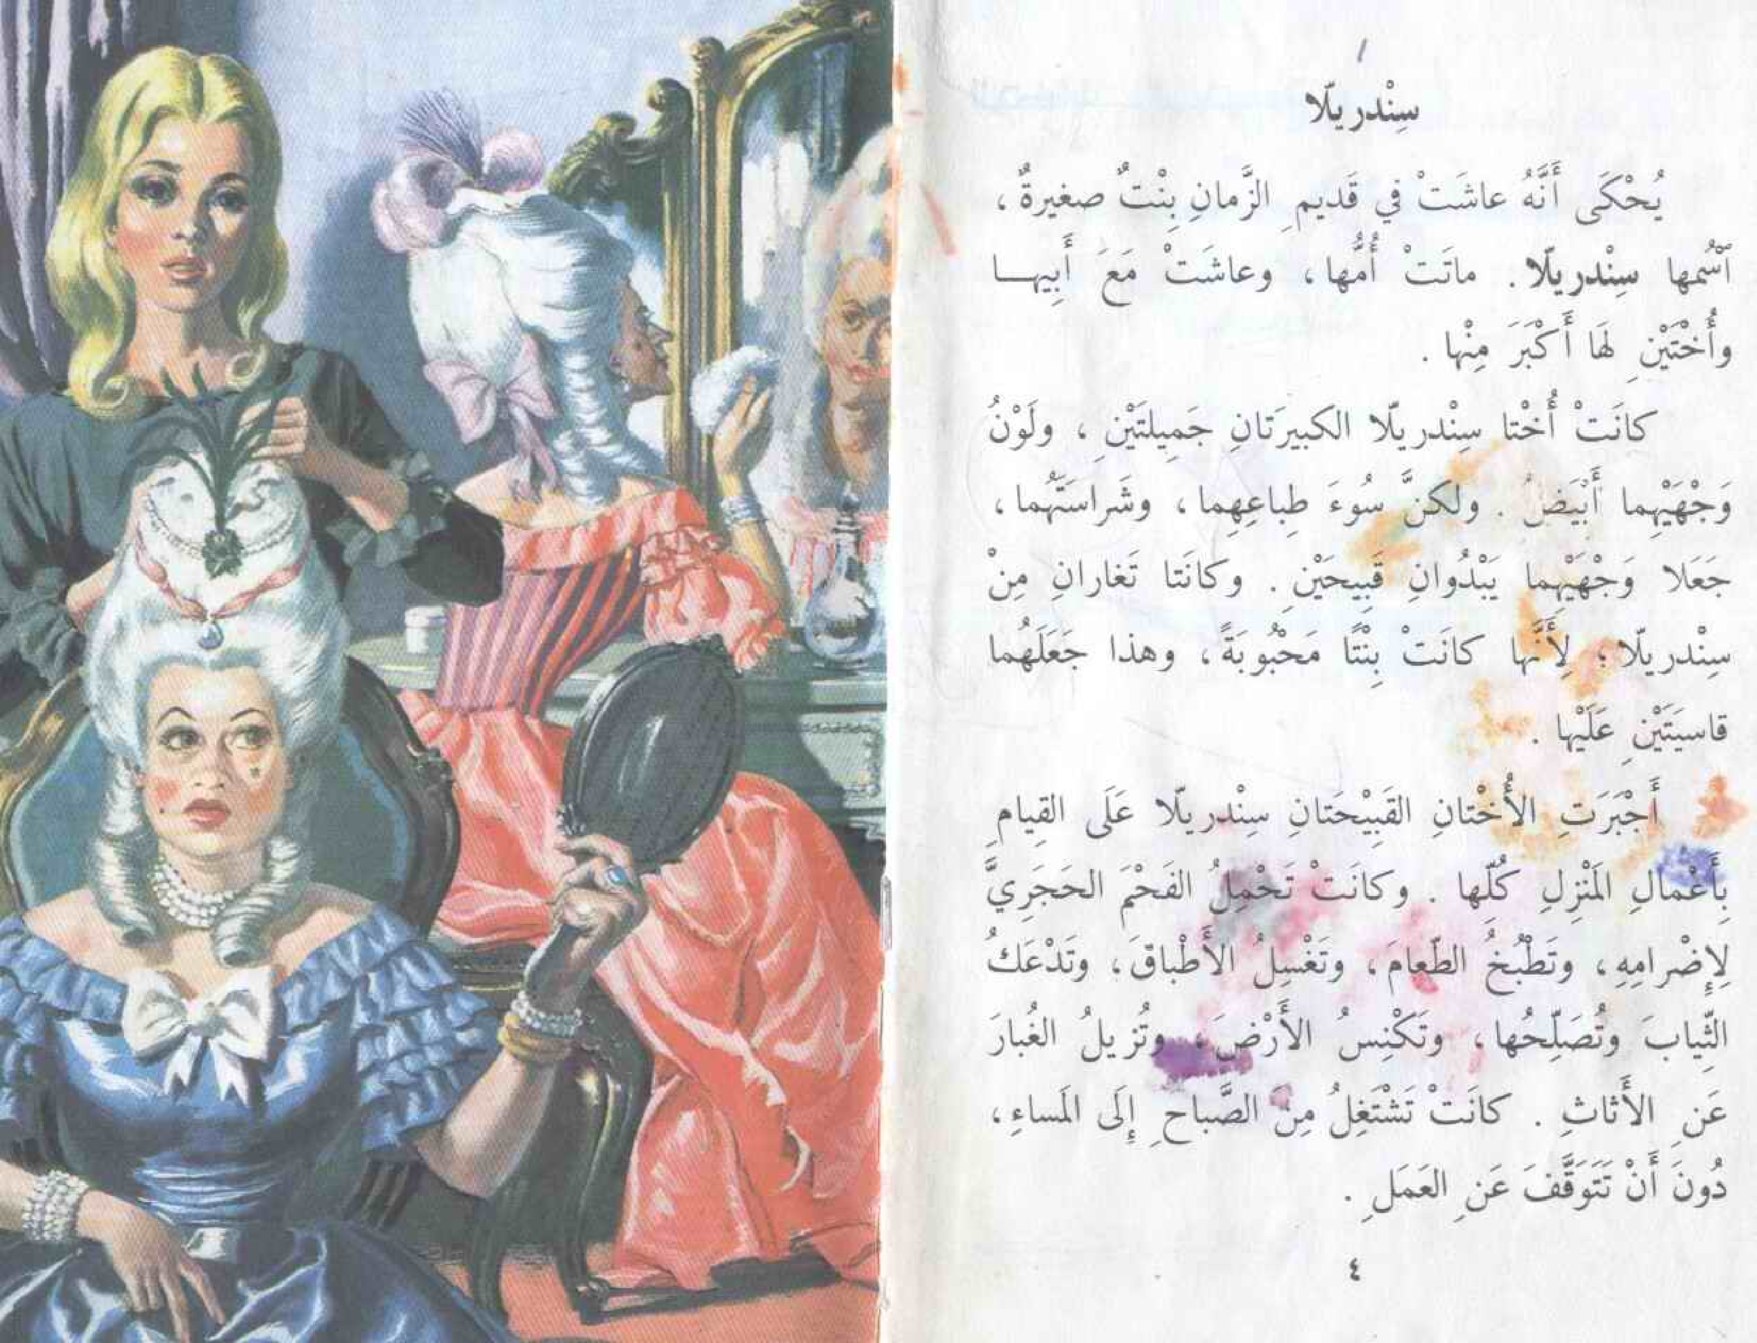 سِنْدريلّا
يُحْكَى أَنَّهُ عاشَتْ في قَديمِ الزَّمانِ بِنْتٌ صغيرةٌ ،
ٱسْمُها سِنْدريلّا . ماتَتْ أُمُّها ، وعاشَتْ مَعَ أَبِيهـا
وأُخْتَيْنِ لَها أَكْبَرَ مِنْها .
كانَتْ أُخْتا سِنْدريلّا الكبيرَتانِ جَمِيلتَيْنِ ، ولَوْنُ
وَجْهَيْهِما أَبْيَضُ . ولكنَّ سُوءَ طِباعِهِما ، وشَراستَهُما ،
جَعَلا وَجْهَيْهِما يَبْدُوانِ قَبِيحَيْنِ . وكانَتا تَغارانِ مِنْ
سِنْدريلّا ؛ لِأَنَّها كانَتْ بِنْتًا مَحْبُوبَةً ، وهذا جَعَلَهُما
قاسيَتَيْنِ عَلَيْها .
أَجْبَرَتِ الأُخْتانِ القَبِيْحَتانِ سِنْدريلّا عَلَى القِيامِ
بِأَعْمالِ المَنْزِلِ كُلِّها . وكانَتْ تَحْمِلُ الفَحْمَ الحَجَرِيَّ
لِإِضْرامِهِ ، وتَطْبُخُ الطّعامَ ، وتَغْسِلُ الأَطْباقَ ، وتَدْعَكُ
الثِّيابَ وتُصَلِّحُها ، وتَكْنِسُ الأَرْضَ ، وتُزيلُ الغُبارَ
عَنِ الأَثاثِ . كانَتْ تَشْتَغِلُ مِنَ الصَّباحِ إِلَى المَساءِ ،
دُونَ أَنْ تَتَوَقَّفَ عَنِ العَمَلِ .
٤